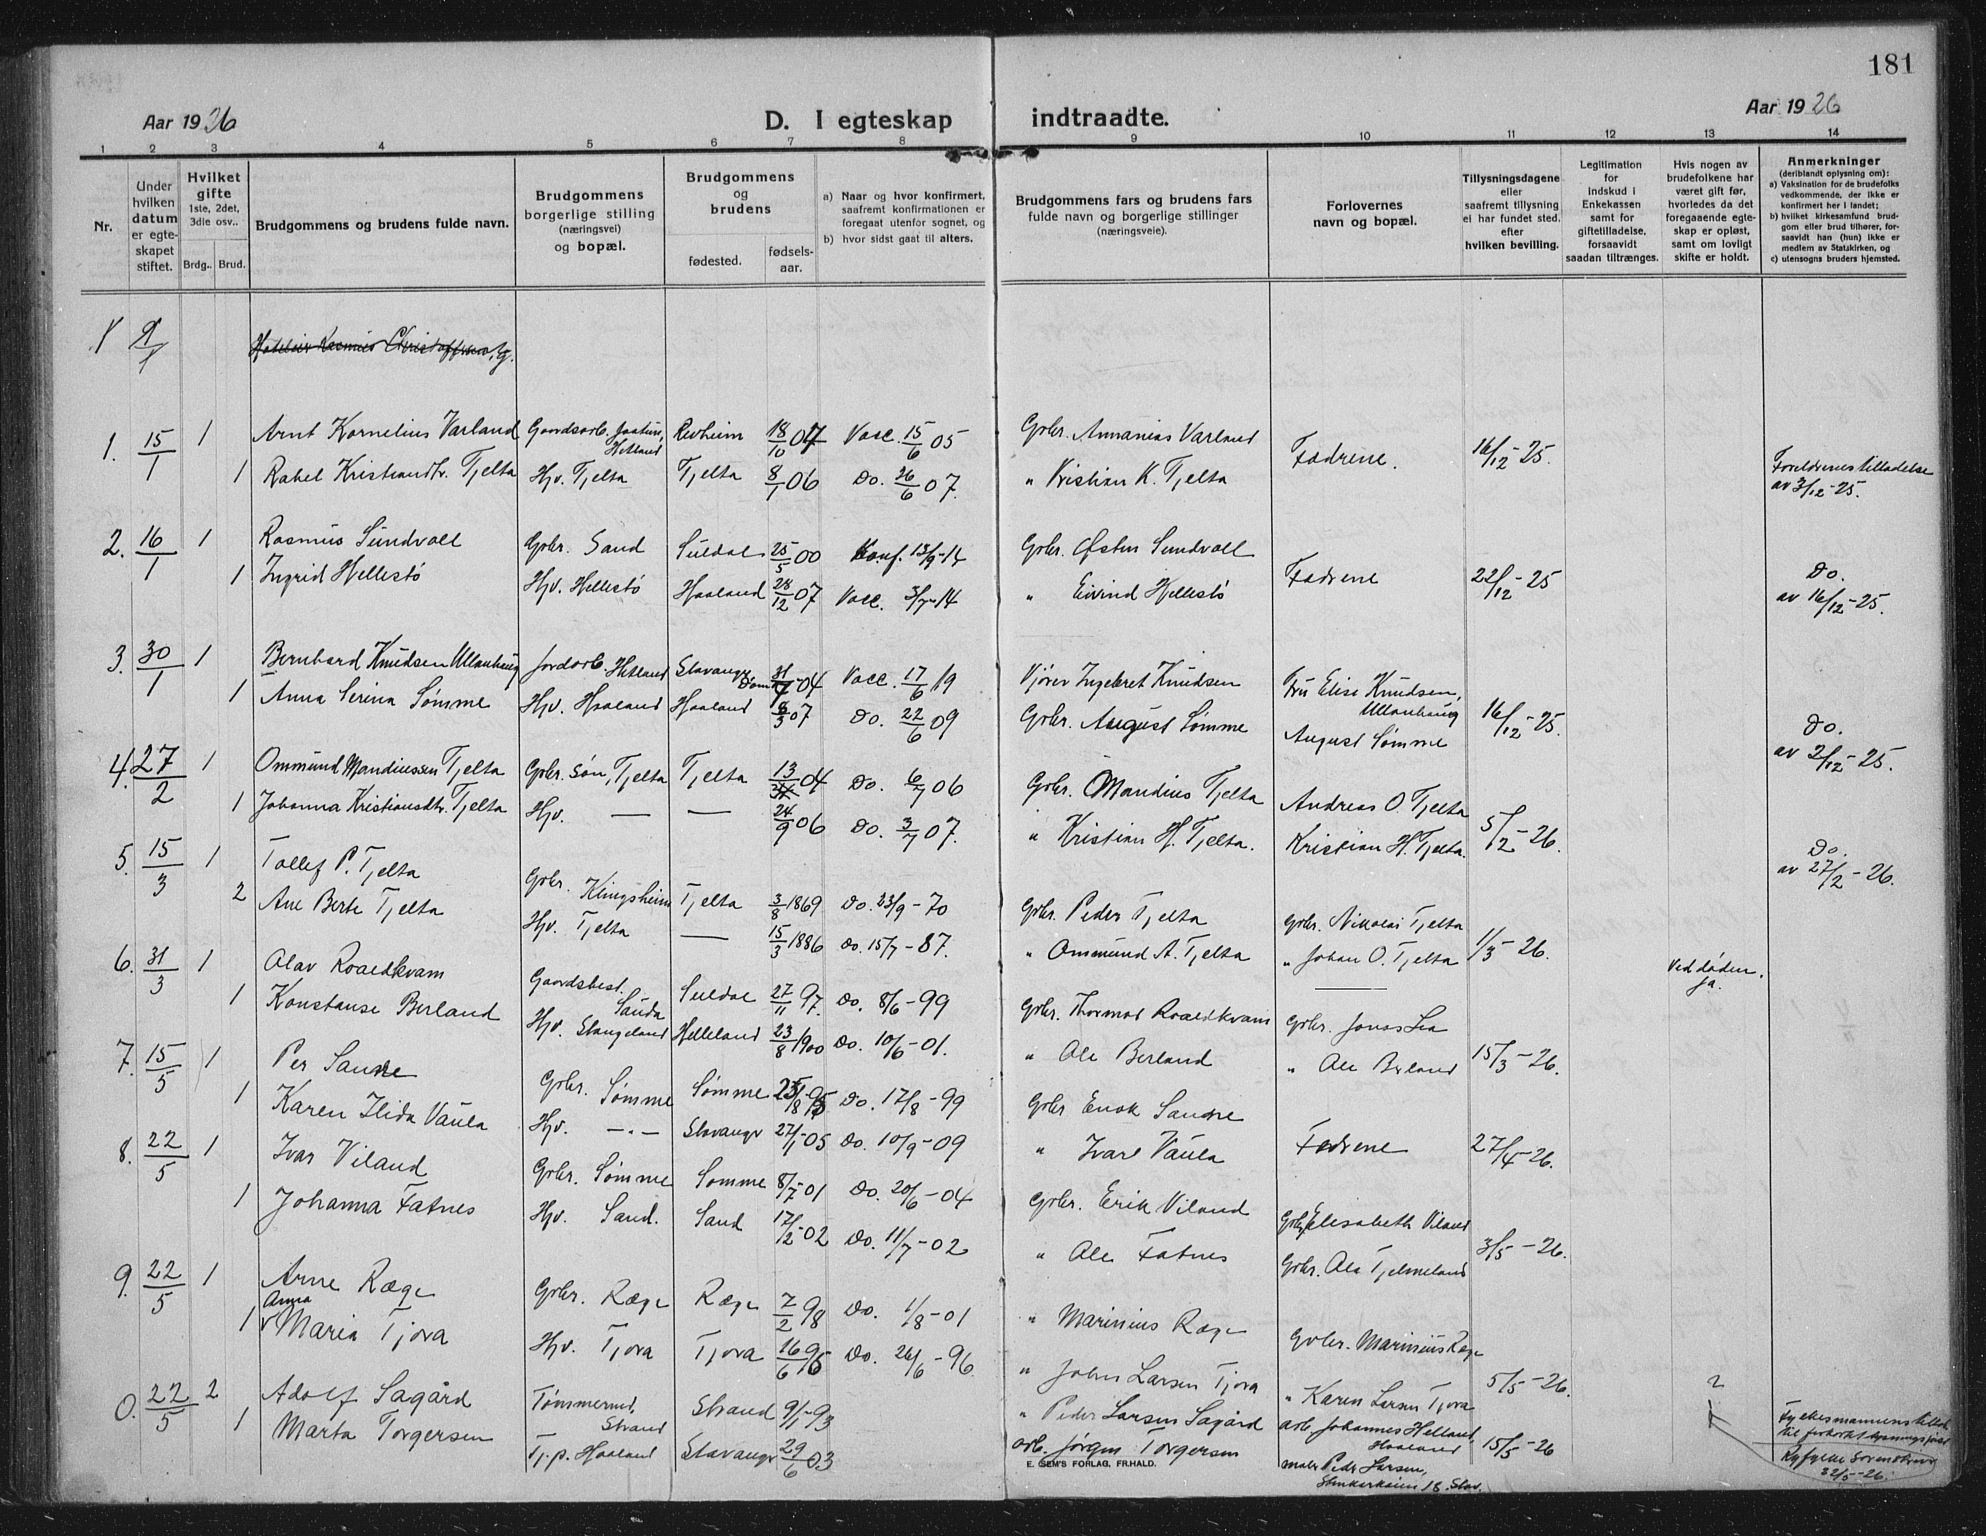 181
Aar 1926
D. I egteskap indtraadte.
Aar 1926
1 2 3 4 5 6 7 8 9 10 11 12 13 14
Nr.
Under hvilken datum er egteskapet stiftet.
Hvilket gifte 1ste, 2det, 3die osv..
Brdg.. Brud.
Brudgommens og brudens fulde navn.
Brudgommens borgerlige stilling (næringsvei) og bopæl.
Brudgommens og brudens
fødested. fødsels-aar.
a) Naar og hvor konfirmert, saafremt konfirmationen er foregaat utenfor sognet, og
b) hvor sidst gaat til alters.
Brudgommens fars og brudens fars fulde navn og borgerlige stillinger (næringsveie).
Forlovernes navn og bopæl.
Tillysningsdagene eller saafremt tillysning ei har fundet sted. efter hvilken bevilling.
Legitimation for indskud i Enkekassen samt for giftetilladelse, forsaavidt saadan tiltrænges.
Hvis nogen av brudefolkene har været gift før, hvorledes da det foregaaende egteskap er opløst, samt om lovligt skifte er holdt.
Anmerkninger (deriblandt oplysning om):
a) Vaksination for de brudefolks vedkommende, der ikke er konfirmert her i landet;
b) hvilket kirkesamfund brudgom eller brud tilhører, forsaavidt han (hun) ikke er medlem av Statskirken, og
c) utensogns bruders hjemsted.
1. 15/1 1 Arnt Kornelius Varland Gaardsarb. Jaatun, Hetland Revheim 18/10 07 Vacc. 15/6 05 Gbr. Annanias Varland Fædrene. 16/12-25.
1 Rakel Kristiansdtr. Tjelta Hjv. Tjelta Tjelta 8/1 06 Do. 26/6 07. " Kristian K. Tjelta Foreldrenes tilladelse av 3/12-25.
2. 16/1 1 Rasmus Sundvall Gbr. Sand Suldal 25/5 00 Konf. 13/9-14 Gbr. Østen Sundvall Fædrene 22/12-25
1 Ingrid Hellestø Hjv. Hellestø Haaland 28/12 07 Vacc. 3/7-14 " Eivind Hellestø Do. av 16/12-25.
3. 30/1 1 Bernhard Knudsen Ullanhaug Jordarb. Hetland Stavanger Dom 04 Vacc. 17/6 19 Ingebret Knudsen Fru Elise Knudsen, Ullanhaug 16/12-25.
1 Anna Serina Sømme Hjv. Haaland Haaland 8/3 07 Do. 22/6 09 Gbr. August Sømme August Sømme Do. av 2/12-25.
4. 27/2 1 Ommund Mandiussen Tjelta Gbr. søn, Tjelta Tjelta 13 04 Do. 6/7 06 Gbr. Mandius Tjelta Andreas O. Tjelta 5/2-26.
1 Johanna Kristiansdtr. Tjelta Hjv. — — 24/9 06 Do. 3/7 07. " Kristian H. Tjelta. Kristian H. Tjelta. Do. av 27/2-26.
5. 15/3 1 Tollef P. Tjelta Gbr. Klingsheim Tjelta 3/8 1869 Do. 23/9-70 Gbr. Peder Tjelta Gbr. Nikolai Tjelta 1/3-26.
2 Ane Berte Tjelta Hjv. Tjelta — 15/3 1886 Do. 15/7-87. " Ommund A. Tjelta " Johan O. Tjelta Ved døden. ja.
6. 31/3 1 Olav Roaldkvam Gaardsbest. Sauda Suldal 27/11 97. Do. 8/6-99 Gbr. Thormod Roaldkvam Gbr. Jonas Lea 15/3-26.
1 Konstanse Berland Hjv. Stangeland Helleland 23/8 1900 Do. 10/6-01. " Ole Berland " Ole Berland
7. 15/5 1 Per Sandre Gbr. Sømme Sømme 25/8 95 Do. 17/8-99 Gbr Enok Sandre Fædrene 27/4-26.
1 Karen Ilida Vaula Hjv. —"— Stavanger 27/1-05 Do. 10/9-09 " Ivare Vaula
8. 22/5 1 Ivar Viland Gbr. Sømme Sømme 8/7-01 Do. 20/6-04 Gbr. Erik Viland Gbr. Elisabeth Viland 3/5-26.
1 Johanna Fatnes Hjv. Sand. Sand 17/2-02 Do. 11/7-02 " Ole Fatnes Gbr. Ola Tjelmeland
9. 22/5 1 Arne Ræge Gbr. Ræge Ræge 7/2 98 Do. 1/8-01 " Marinius Ræge Gbr. Marinius Ræge 5/5-26.
1 Anna Maria Tjora Hjv. Tjora Tjora 16/6 95 Do. 26/6-96 " John Larsen Tjora " Karen Larsen Tjora
0. 22/5 2 Adolf Sagård Tømmermd. Strand Strand 9/1-93 " Peder Larsen Sagård arb. Johannes Helland, Haaland 15/5-26 2
1 Marta Torgersen Tj.p. Haaland Stavanger 29/6 03 arb. Jørgen Torgersen maler Peder Larsen, 18. Stav.
Fylkesmannens
22/5-26.
E. SEM'S FORLAG, FR.HALD.